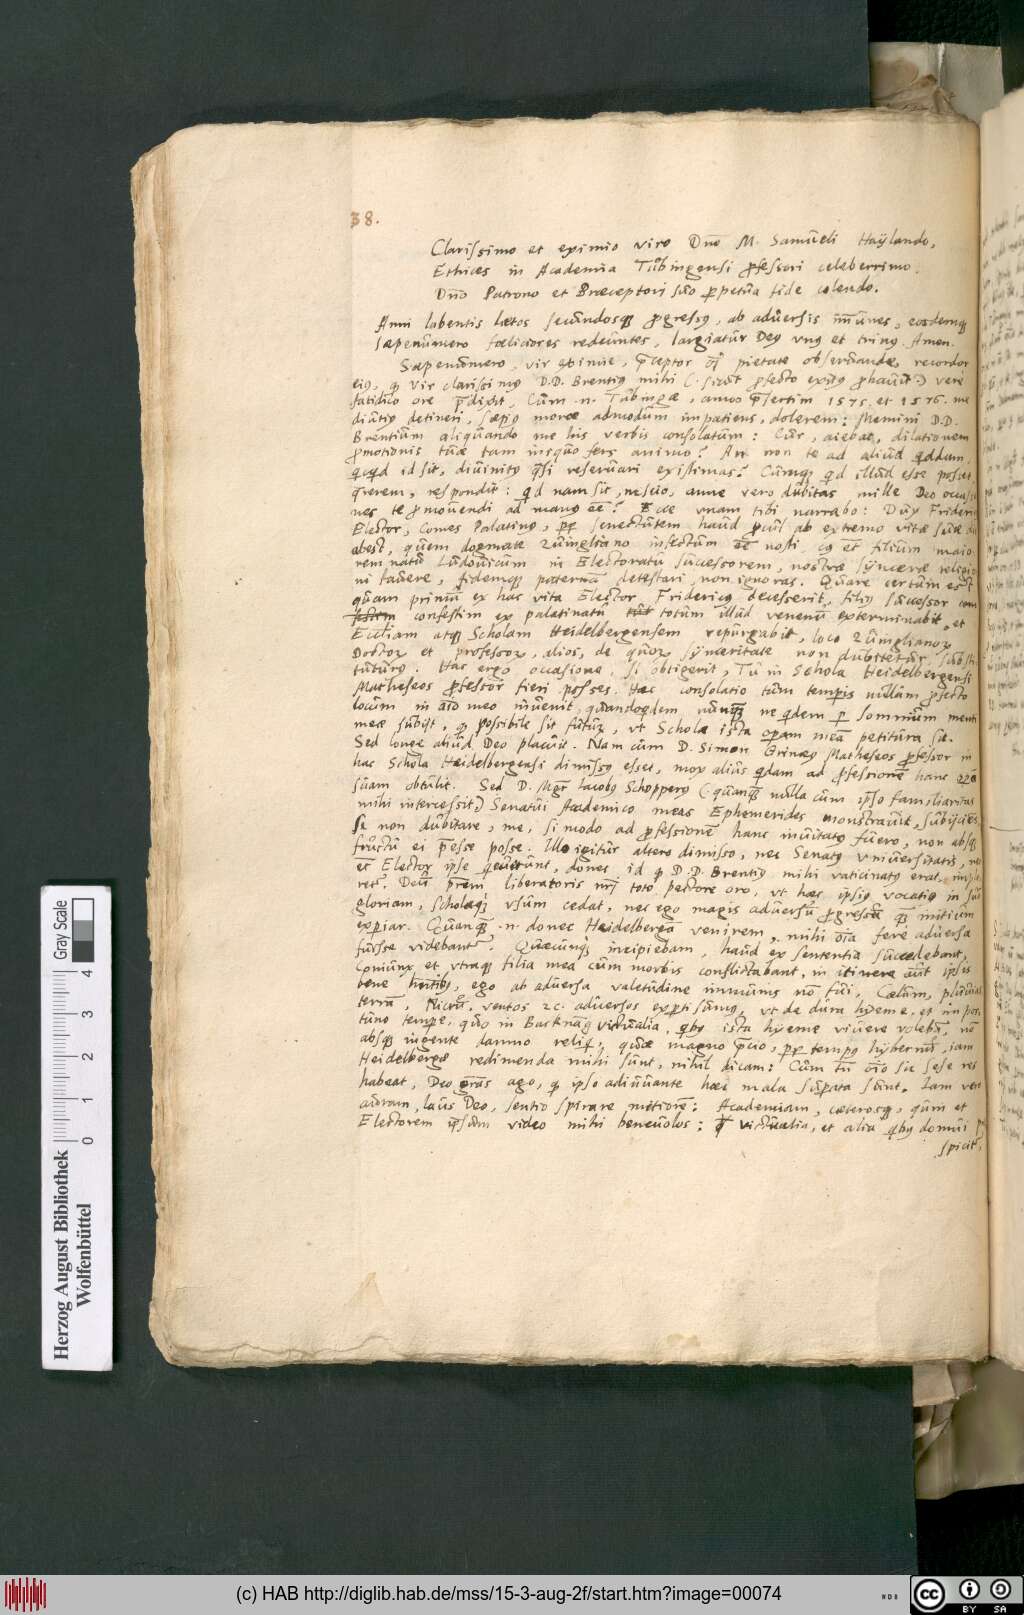 38.
Clarissimo et eximio viro Dno M. Samueli Haÿlando,
Ethices in Academia Tubingensi professori celeberrimo.
Dno Patrono et Præceptori suo perpetua fide colendo.
Anni labentis lætos secundosq progressus, ab adversis immunes, eosdemq
sæpenumero fœliciores redeuntes, largiatur Deus unus et trinus. Amen.
Sæpenumero, vir eximie, præceptor omi pietate observande, recordor
eius, q vir clarissimus D.D. Brentius mihi (sicut profecto exitus probavit) vere
fatidico ore prædixit, Cum .n. Tubingæ, anno præsertim 1575. et 1576. me
diutius detineri, sæpius moræ admodum impatiens, dolerem: Memini D.D.
Brentium aliquando me his verbis consolatum: Cur, aiebat, dilationem
promotionis tuæ tam iniquo fers animo? An non te ad aliud qddam,
qcqd id sit, divinitus qsi reservari existimas? Cumq qd illud esse posset,
qrerem, respondit: qd nam sit, nescio, anne vero dubitas mille Deo occasio
nes te promovendi ad manus ee? Ecce unam tibi narrabo: Dux Frideri
Elector, Comes Palatinus, pp senectutem haud procul ab extremo vitæ suæ die
abest, quem dogmate Zuingliano infectum ee nosti, cq et filium maio
rem natu Ludovicum in Electoratu successorem, nostræ sÿnceræ religio
ni favere, fidemq paternam detestari, non ignoras. Quare certum est
quam primum ex hac vita Elector Fridericus decesserit, filius successor com
confestim ex palatinatu totum illud venenum exterminabit, et
Eccliam atq Scholam Heidelbergensem repurgabit, loco Zuinglianor
Doctor et professor, alios, de quor sÿnceritate non dubitetur substi
tuturus. Hac ergo occasione, si obtigerit, Tu in Schola Heidelbergensi
Matheseos professor fieri posses. Hæc consolatio tum temporis nullum profecto
locum in aio meo invenit, quandoqdem nunq ne qdem p somnium menti
meæ subijt, q possibile sit futur, ut Scholæ ista operam meam petitura sit.
Sed longe aliud Deo placuit. Nam cum D. Simon Grinæus Matheseos professor in
hac Schola Heidelbergensi dimissus esset, mox alius qdam ad professionem hanc operam
suam obtulit. Sed D. Mgr Iacobus Schopperus (quanq nulla cum ipso familiaritas
mihi intercessit) Senatui Academico meas Ephemerides monstravit, subijciens,
se non dubitare, me, si modo ad professionem hanc invitatus fuero, non absq
fructu ei præesse posse. Illo igitur altero dimisso, nec Senatus universitatis, nec
et Elector ipse quieverunt, donec, id q D.D. Brentius mihi vaticinatus erat, imple
ret. Deum patrem liberatoris nri toto pectore oro, ut hæc ipsius vocatio in sui
gloriam, scholæq usum cedat, nec ego magis adversum progressum q initium
experiar. Quanq .n. donec Heidelbergam venirem, mihi oia fere adversa
fuisse videbantr. Quæcunq incipiebam, haud ex sententia succedebant,
Coniunx et utraq filia mea cum morbis conflictabant, in itinere aut ipsis
bene habentibus, ego ab adversa valetudine immunis non fui. Cælum, pluvias
terram, Nicrum, ventos 2c. adversos experti sumus, ut de dura hÿeme, et impor
tuno tempore, quo in Backnang victualia, qbus ista hÿeme vivere volebam, non
absq ingente damno reliqi, quæ magno precio, pp tempus hÿbernum, iam
Heidelbergæ redimenda mihi sunt, nihil dicam: Cum tn oio sic sese res
habeat, Deo gras ago, q ipso adiuvante hæc mala superata sunt. Iam vero
auram, laus Deo, sentio spirare mitiorem: Academiam, cæterosq, qum et
Electorem ipsum video mihi benevolos: victualia, et alia qbus domui
spicitr,
Herzog August Bibliothek
Wolfenbüttel
Gray Scale
0 1 2 3 4
(c) HAB http://diglib.hab.de/mss/15-3-aug-2f/start.htm?image=00074
WDB
cc BY SA